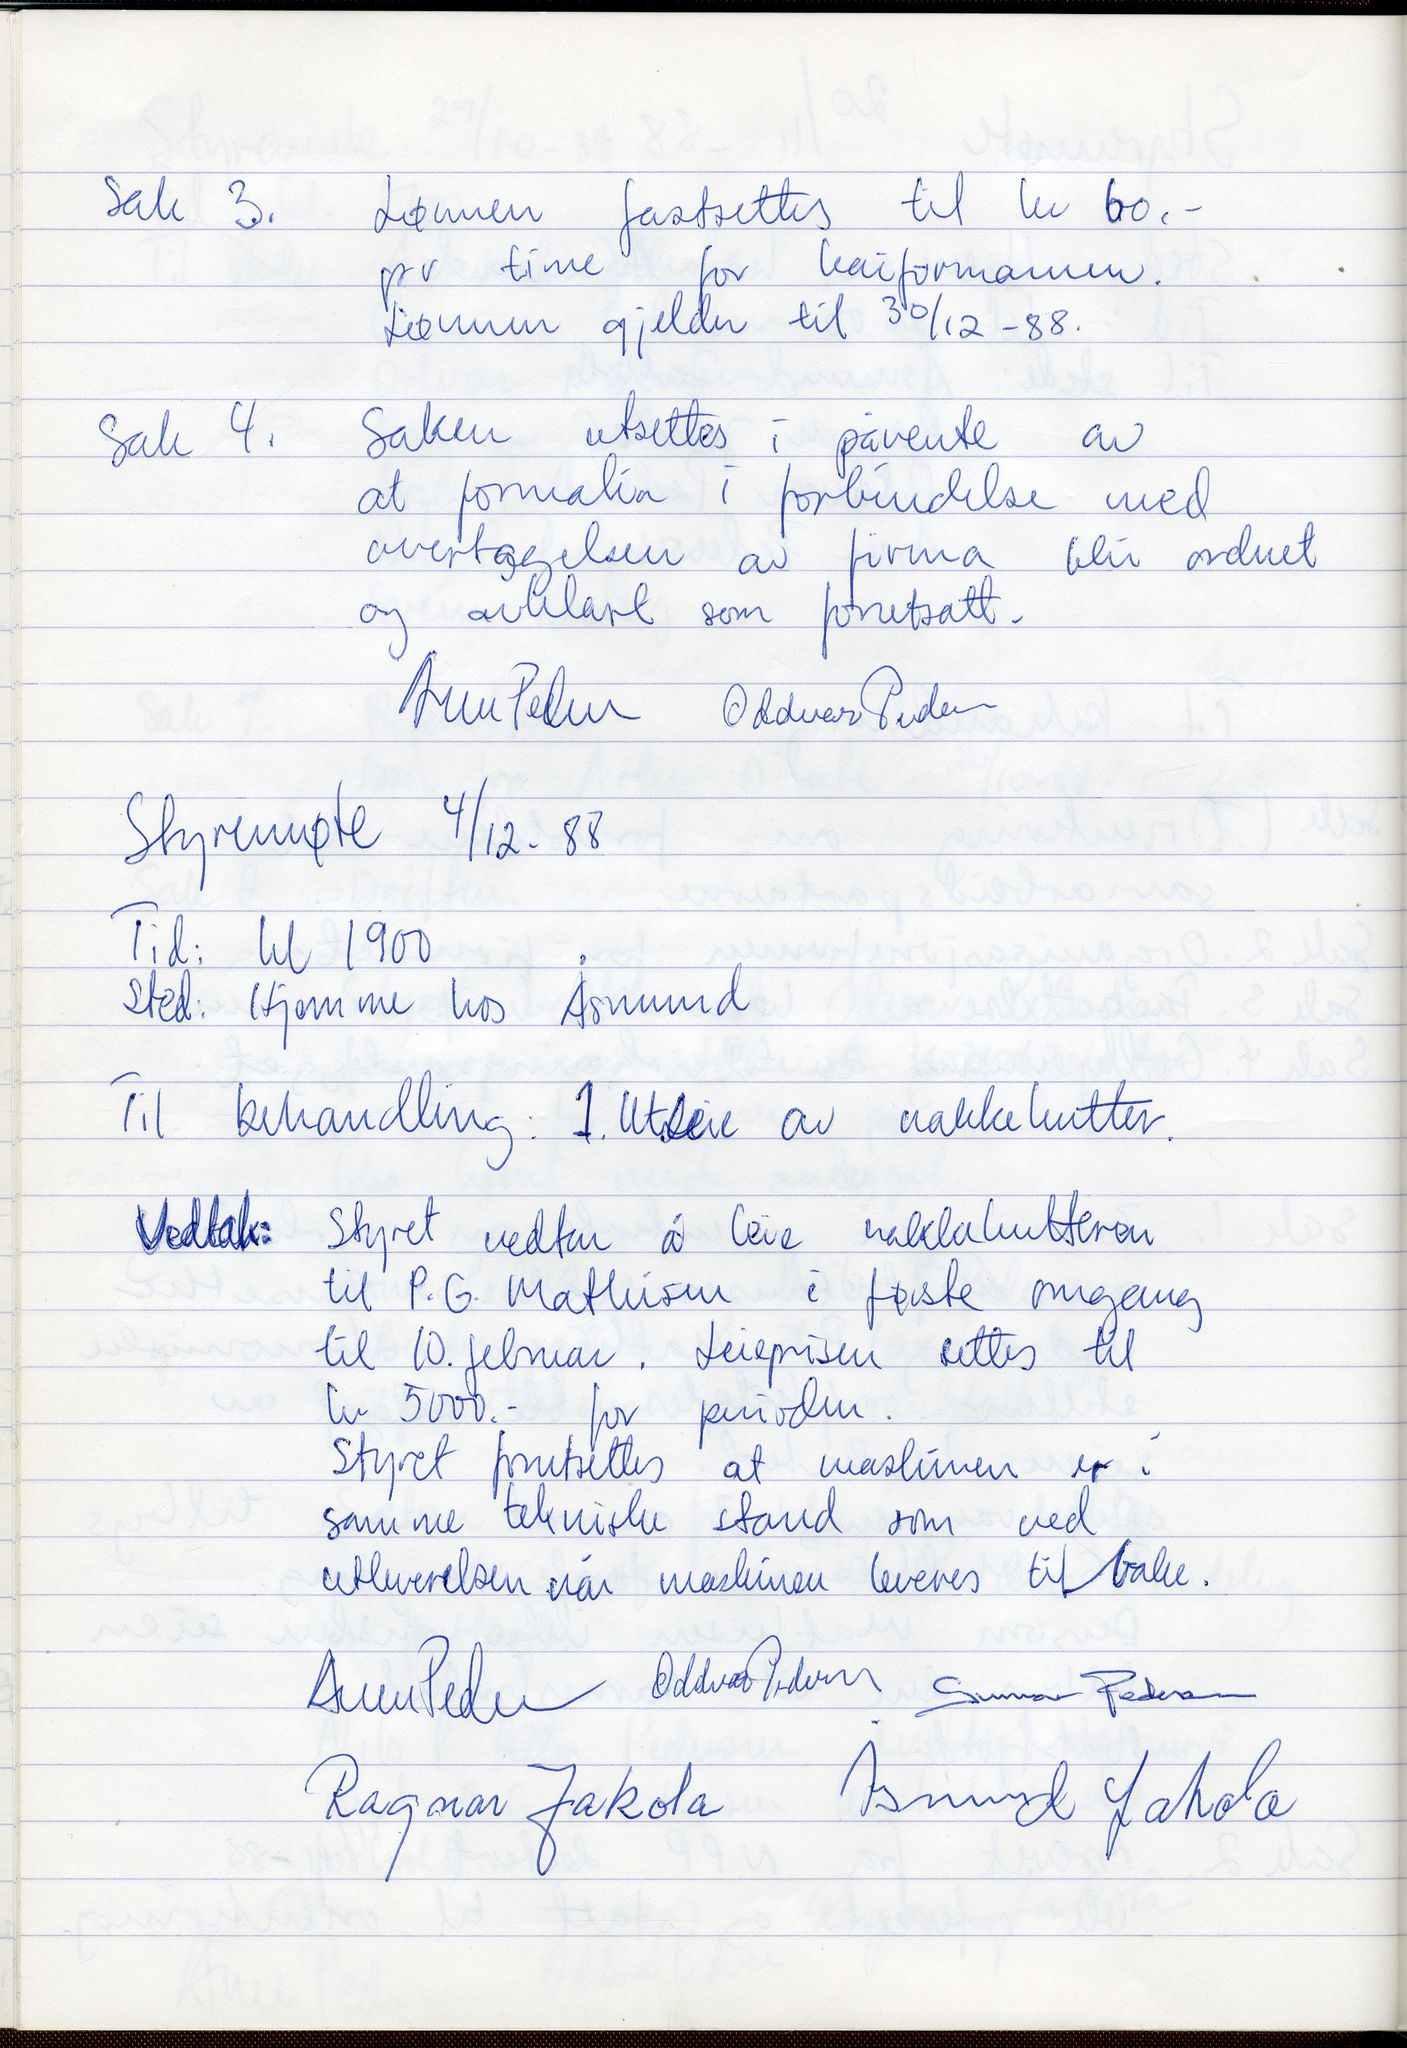 Sak 3. Lønnen fastsettes til kr 60.-
pr time for kaiformannen.
Lønnen gjelder til 30/12-88.
Sak 4. Saken utsettes i påvente av
at formalia i forbindelse med
overtagelsen av firma blir ordnet
og avklart som forutsatt.
Oddvar Pedersen
Styremøte 4/12-88
Tid: kl 1900
Sted: Hjemme hos Åsmund
Til behandling: 1. Utleie av nakkekutter.
Vedtak: Styret vedtar å leie nakkekutteren
til P.G. Mathisen i første omgang
til 10. februar. Leieprisen settes til
kr 5000.- for perioden.
Styret forutsettes at maskinen er i
samme tekniske stand som ved
utleverelsen når maskinen leveres tilbake.
Oddvar Pedersen Gunnar Pedersen
Ragnar Jakola Åsmund Jakola